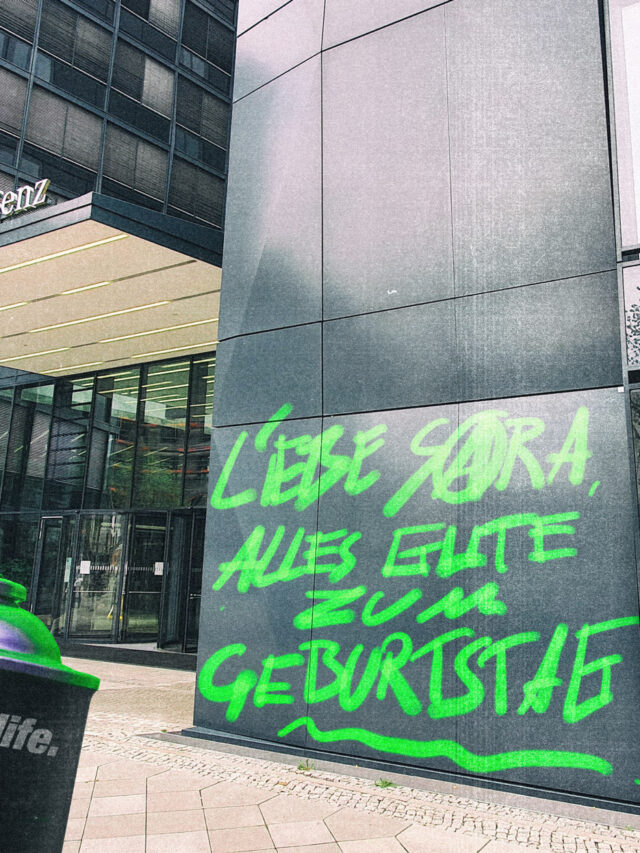 enz
LIEBE SARA,
ALLES GUTE
ZUM
GEBURTSTAG
life.